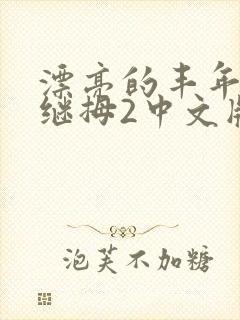 漂亮的丰年
继拇2中文版
泡芙不加糖